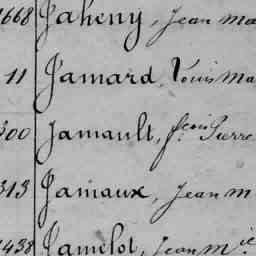 1668 Jaheny, Jean Ma
11 Jamard, Louis Ma
300 Jamault, fçois Pierre
313 Jamaux, Jean M
1438 Jamelot, Jean M.ie